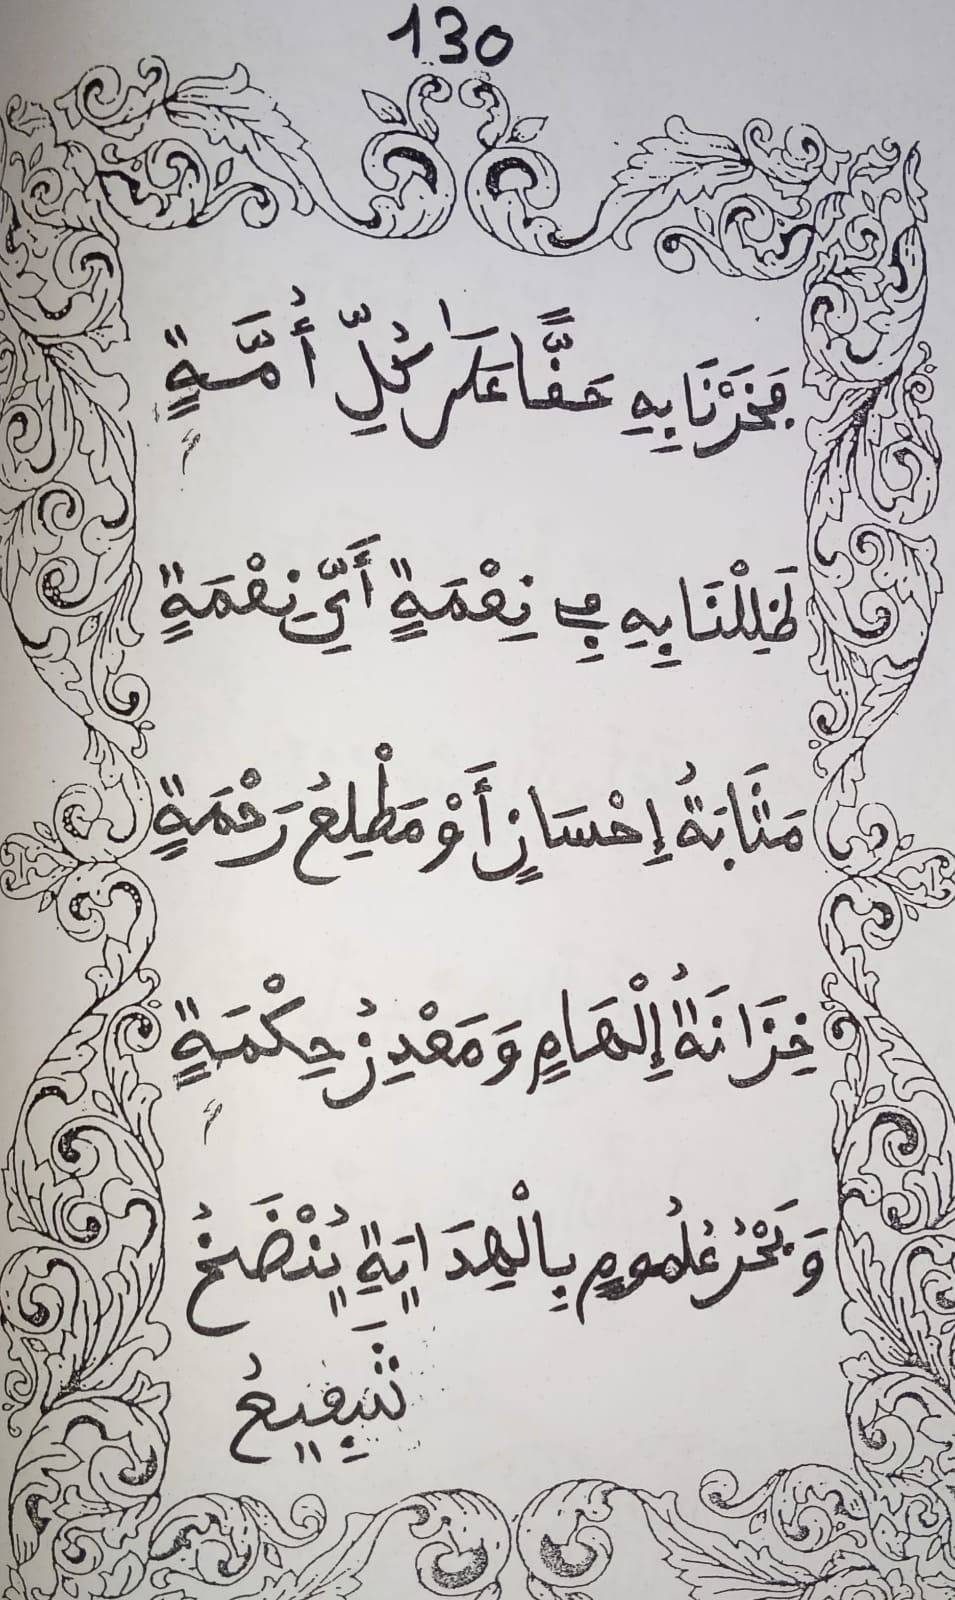 130
فَخَرْنَا بِهِ حَقًّا عَلَى كُلِّ أُمَّةٍ
ظَلِلْنَا بِهِ فِي نِعْمَةٍ أَيِّ نِعْمَةٍ
مَثَابَةُ إِحْسَانٍ أَوْ مَطْلِعُ رَحْمَةٍ
خِزَانَةُ إِلْهَامٍ وَمَعْدِنُ حِكْمَةٍ
وَبَحْرُ عُلُومٍ بِالْهِدَايَةِ يُنْضَخُ
شَفِيعُ